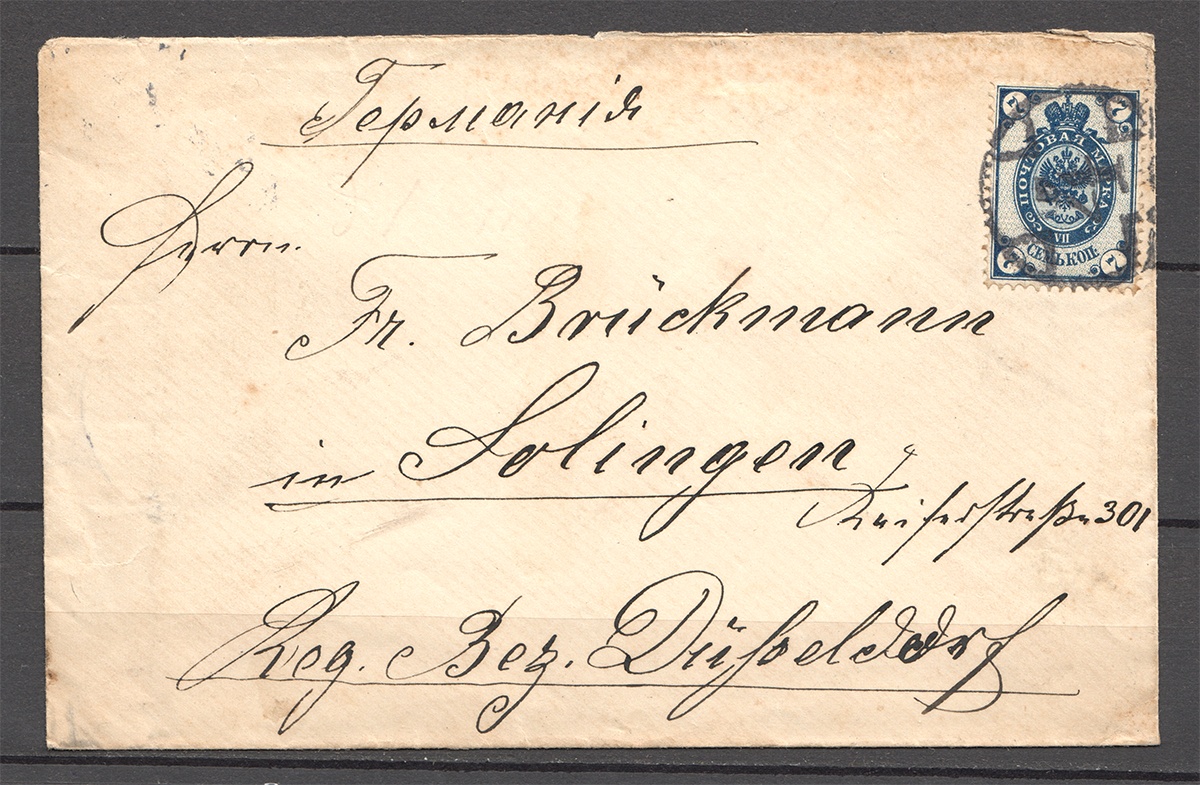 Германія
Herrn
Fr. Brückmann
in Solingen
Kaiserstraße 301
Reg. Bez. Düsseldorf
7 7
ПОЧТОВАЯ МАРКА
VII
СЕМЬ КОП.
7 7